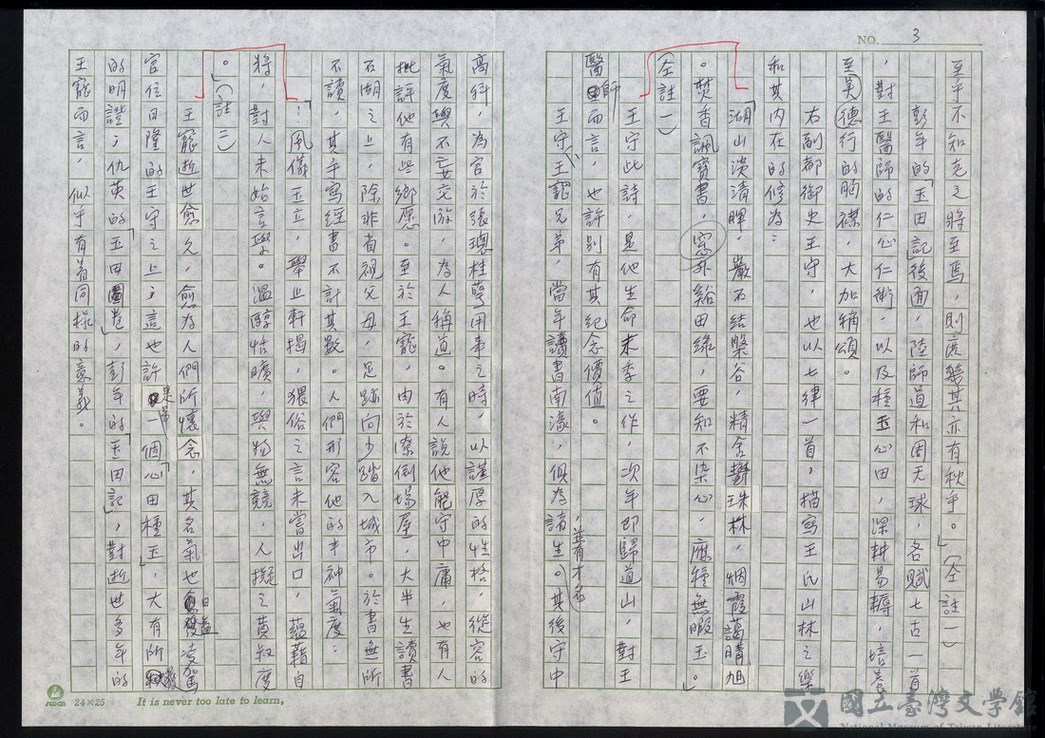 NO. 3
至乎不知老之將至焉，則庶幾其亦有秋乎。」（仝註一）
彭年的「玉田記」後面，陸師道和周天球，各賦七古一首
，對王醫師的仁心仁術，以及種玉心田，深耕易耨，培養
至美德行的胸襟，大加稱頌。
右副都御史王守，也以七律一首，描寫王氏山林之樂
和其內在的修為：
「湖山淡清暉，巖石結槃谷，精舍鬱珠林，烟霞藹晴旭
。焚香諷寶書，窓外谿田綠，要知不染心，應種無暇玉。」
仝註一）
王守此詩，是他生命末季之作，次年即歸道山，對王
醫師而言，也許別有其紀念價值。
王守、王寵兄弟，當年讀書南濠，俱為諸生，並有才名。其後守中
高科，為官於張璁桂萼用事之時，以謹厚的性格，從容的
氣度與不妄交游，為人稱道。有人說他能守中庸，也有人
批評他有些鄉愿。至於王寵，由於潦倒場屋，大半生讀書
石湖之上，除非省視父母，足跡向少踏入城市。於書無所
不讀，其手寫經書不計其數。人們形容他的丰神氣度：
「：風儀玉立，舉止軒揭，猥俗之言未嘗出口，蘊藉自
將，對人未始言學。溫醇恬曠，與物無競，人擬之黃叔度
。」（註二）
王寵逝世愈久，愈為人們所懷念，其名氣也日益凌駕
官位日隆的王守之上；這也許是另一個「心田種玉」，大有所穫
的明證；仇英的「玉田圖卷」，彭年的「玉田記」，對逝世多年的
王寵而言，似乎有着同樣的意義。
24×25
It is never too late to learn,
國立臺灣文學館
National Museum of Taiwan Literature